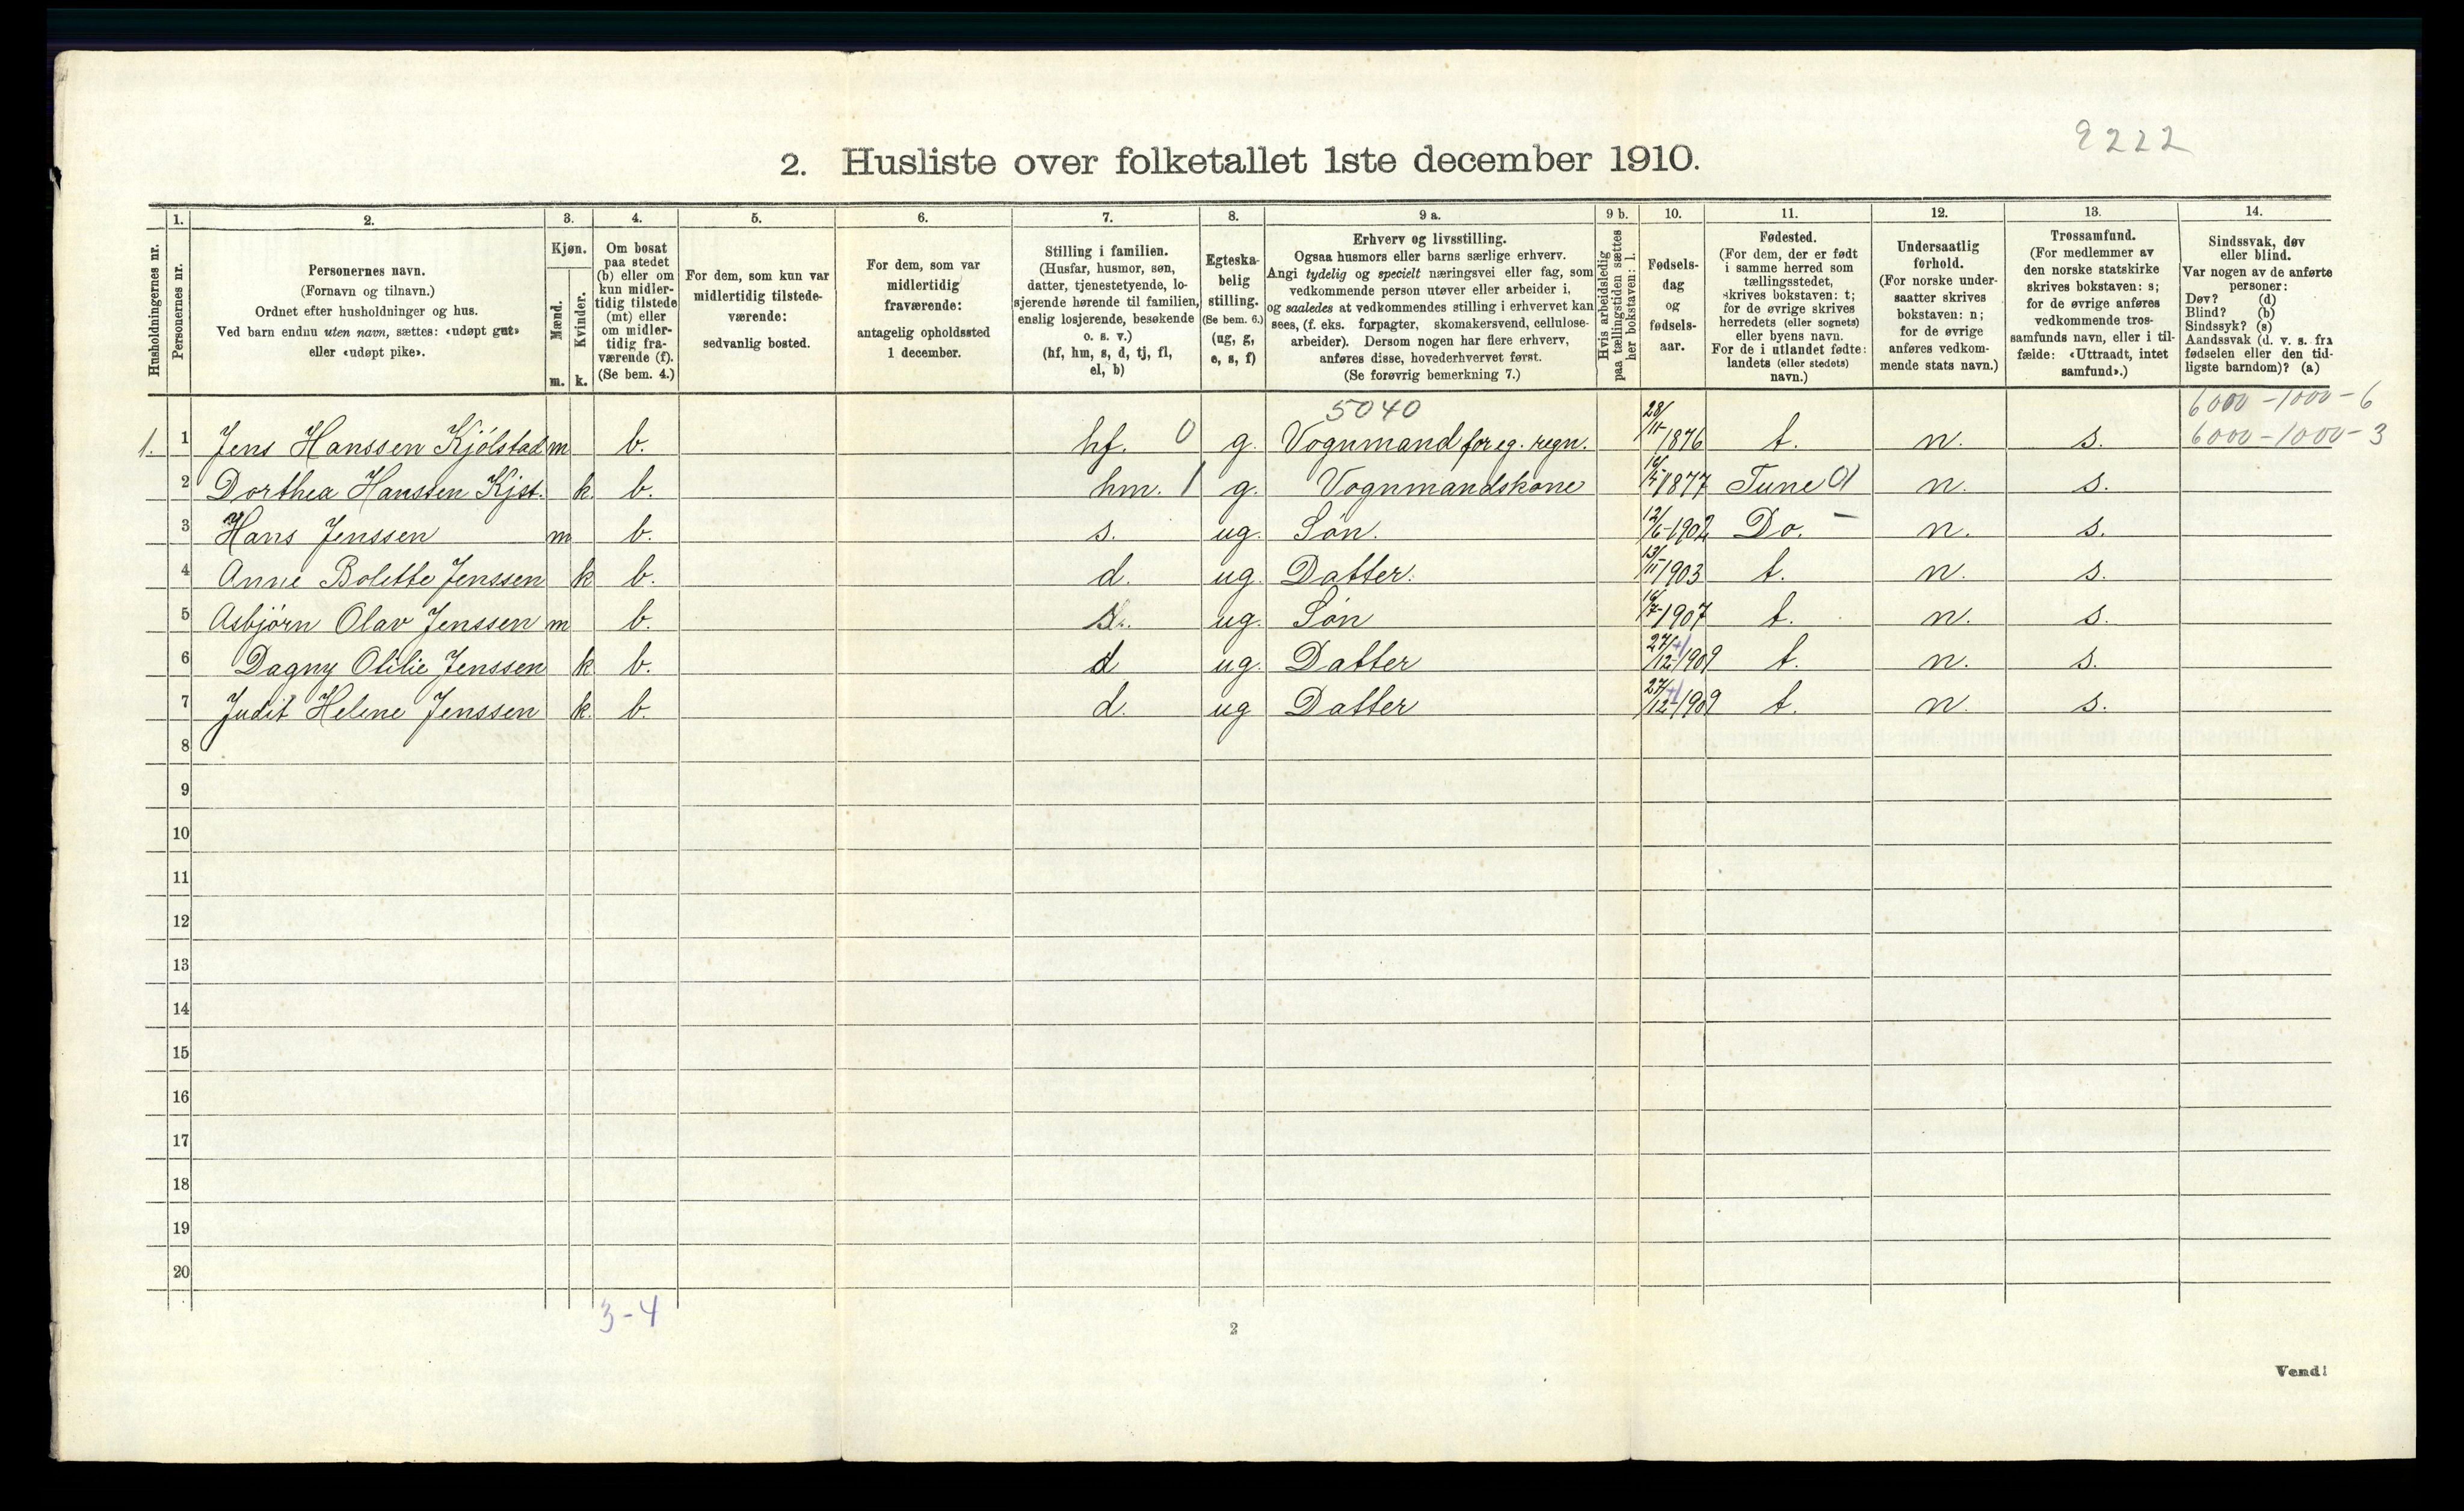 2222
2. Husliste over folketallet 1ste december 1910.
Husholdningernes nr.
1.
Personernes nr.
2.
Personernes navn.
(Fornavn og tilnavn.)
Ordnet efter husholdninger og hus.
Ved barn endnu uten navn, sættes: «udøpt gut»
eller «udøpt pike».
3.
Kjøn.
Mænd.
m.
Kvinder.
k.
4.
Om bosat
paa stedet
(b) eller om
kun midler-
tidig tilstede
(mt) eller
om midler-
tidig fra-
værende (f).
(Se bem. 4.)
5.
For dem, som kun var
midlertidig tilstede-
værende:
sedvanlig bosted.
6.
For dem, som var
midlertidig
fraværende:
antagelig opholdssted
1 december.
7.
Stilling i familien.
(Husfar, husmor, søn,
datter, tjenestetyende, lo-
sjerende hørende til familien,
enslig losjerende, besøkende
o. s. v.)
(hf, hm, s, d, tj, fl,
el, b)
8.
Egteska-
belig
stilling.
(Se bem. 6.)
(ug, g,
e, s, f)
9 a.
Erhverv og livsstilling.
Ogsaa husmors eller barns særlige erhverv.
Angi tydelig og specielt næringsvei eller fag, som
vedkommende person utøver eller arbeider i,
og saaledes at vedkommendes stilling i erhvervet kan
sees, (f. eks. forpagter, skomakersvend, cellulose-
arbeider). Dersom nogen har flere erhverv,
anføres disse, hovederhvervet først.
(Se forøvrig bemerkning 7.)
9 b.
Hvis arbeidsledig
paa tællingstiden sættes
her bokstaven: l.
10.
Fødsels-
dag
og
fødsels-
aar.
11.
Fødested.
(For dem, der er født
i samme herred som
tællingsstedet,
skrives bokstaven: t;
for de øvrige skrives
herredets (eller sognets)
eller byens navn.
For de i utlandet fødte:
landets (eller stedets)
navn.)
12.
Undersaatlig
forhold.
(For norske under-
saatter skrives
bokstaven: n;
for de øvrige
anføres vedkom-
mende stats navn.)
13.
Trossamfund.
(For medlemmer av
den norske statskirke
skrives bokstaven: s;
for de øvrige anføres
vedkommende tros-
samfunds navn, eller i til-
fælde: «Uttraadt, intet
samfund».)
14.
Sindssvak, døv
eller blind.
Var nogen av de anførte
personer:
Døv? (d)
Blind? (b)
Sindssyk? (s)
Aandssvak (d. v. s. fra
fødselen eller den tid-
ligste barndom)? (a)
5040
6000-1000-6
1. 1 Jens Hanssen Kjólstad m b. hf. 0 g. Vognmand for eg. regn. 28/11-1876 t. n. s. 6000-1000-3
2 Dorthea Hanssen Kjst. k. b. hm. 1 g. Vognmandskone 1877 Tune 01 n. s.
3 Hans Jenssen m b. s. ug. Són. 12/6-1902 Do. - n. s.
4 Anne Bolette Jenssen k b. d. ug. Datter. 13/11-1903 t. n. s.
5 Asbjörn Olav Jenssen m b. s. ug. Són 16/7-1907 t. n. s.
6 Dagny Otilie Jenssen k. b. d ug. Datter 27/12-1909 t. n. s.
7 Judit Helene Jenssen k. b. d. ug Datter 27/12-1909 t. n. s.
8
9
10
11
12
13
14
15
16
17
18
19
20
3-4
2
Vend!